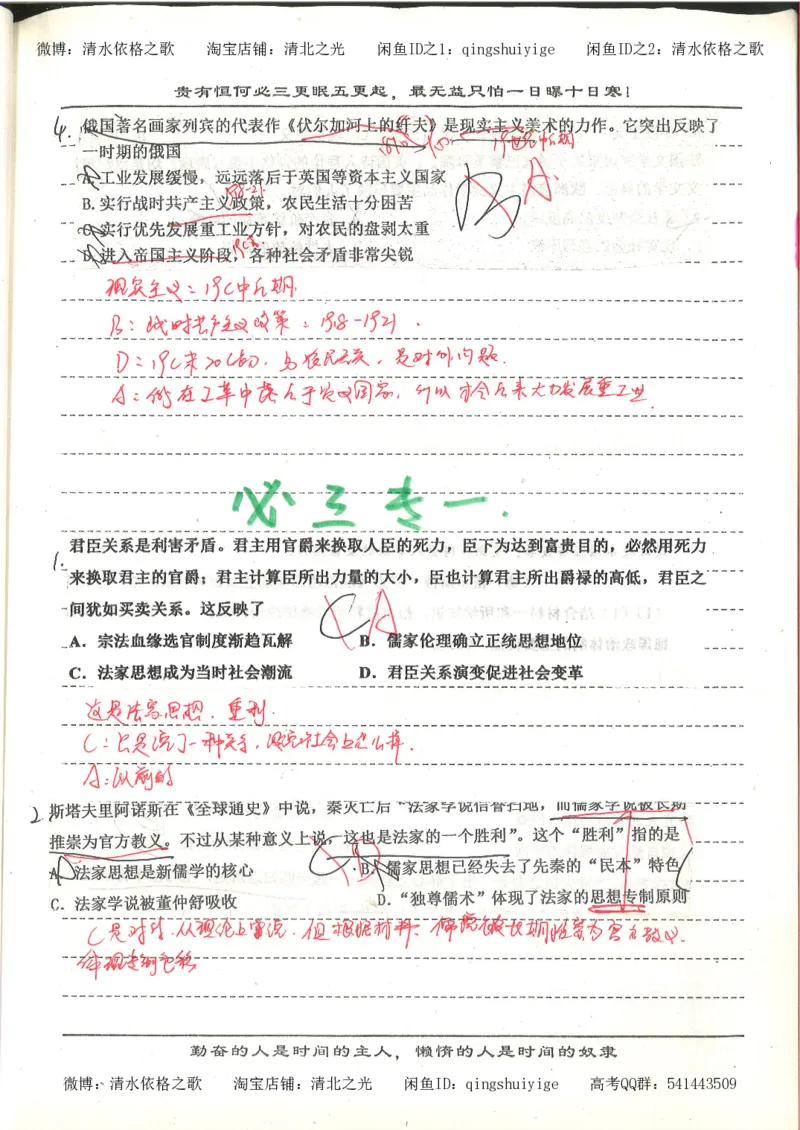 微博：清水依格之歌 淘宝店铺：清北之光 闲鱼ID之1：qingshuiyige 闲鱼ID之2：清水依格之歌
贵有恒何必三更眠五更起，最无益只怕一日曝十日寒！
4. 俄国著名画家列宾的代表作《伏尔加河上的纤夫》是现实主义美术的力作。它突出反映了
19世纪中后期
一时期的俄国
A.工业发展缓慢，远远落后于英国等资本主义国家
B.实行战时共产主义政策，农民生活十分困苦
C.实行优先发展重工业方针，对农民的盘剥太重
D.进入帝国主义阶段，各种社会矛盾非常尖锐
B A.
现实主义：19C中后期
B：战时共产主义政策：1918-1921.
D：19C末20C初，与农民无关，是对外问题.
A：俄在工革中落后于资义国家，所以才会后来大力发展重工业.
必三专一.
1. 君臣关系是利害矛盾。君主用官爵来换取人臣的死力，臣下为达到富贵目的，必然用死力
来换取君主的官爵；君主计算臣所出力量的大小，臣也计算君主所出爵禄的高低，君臣之
间犹如买卖关系。这反映了
C A
A．宗法血缘选官制度渐趋瓦解 B．儒家伦理确立正统思想地位
C．法家思想成为当时社会潮流 D．君臣关系演变促进社会变革
这是法家思想，重利.
C：只是说了一种关系，没说社会上怎么样.
A：以前的
2. 斯塔夫里阿诺斯在《全球通史》中说，秦灭亡后“法家学说信誉扫地，而儒家学说被长期
推崇为官方教义。不过从某种意义上说，这也是法家的一个胜利”。这个“胜利”指的是
A．法家思想是新儒学的核心 B．儒家思想已经失去了先秦的“民本”特色
C．法家学说被董仲舒吸收 D.“独尊儒术”体现了法家的思想专制原则
C是对的，从理论上来说，但根据材料，儒学被长期推崇为官方教义.
体现专制色彩
勤奋的人是时间的主人，懒惰的人是时间的奴隶
微博：清水依格之歌 淘宝店铺：清北之光 闲鱼ID：qingshuiyige 高考QQ群：541443509